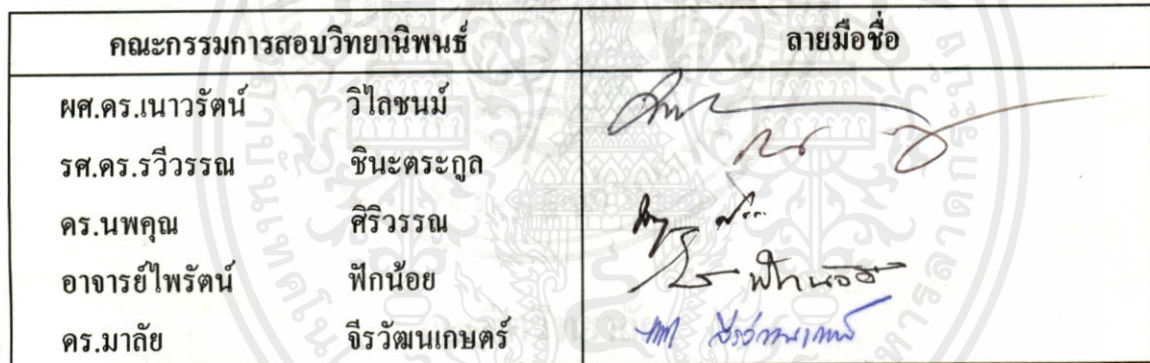 คณะกรรมการสอบวิทยานิพนธ์ ลายมือชื่อ
ผศ.ดร.เนาวรัตน์ วิไลชนม์
รศ.ดร.รวีวรรณ ชินะตระกูล
ดร.นพคุณ ศิริวรรณ
อาจารย์ไพรัตน์ ฟักน้อย ฟักน้อย
ดร.มาลัย จีรวัฒนเกษตร์